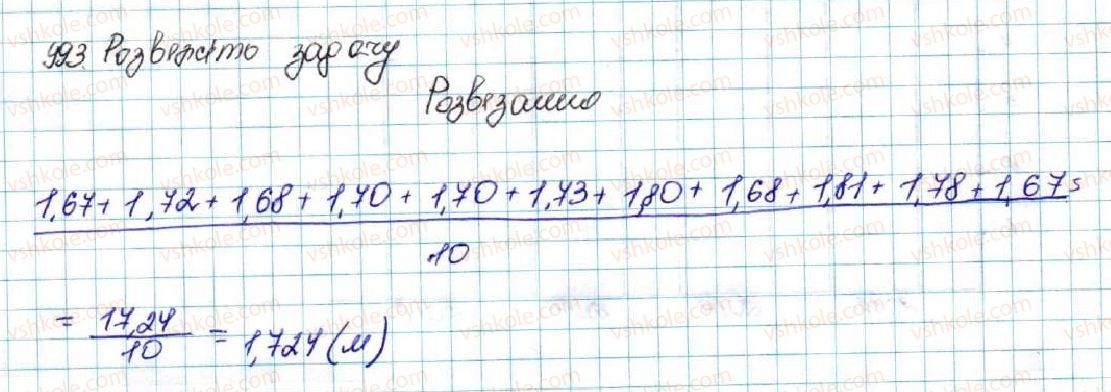 993. Розвяжіть задачу
Розвязання
1,67 + 1,72 + 1,68 + 1,70 + 1,70 + 1,73 + 1,80 + 1,68 + 1,81 + 1,78 + 1,67 =
10
= 17,24 / 10 = 1,724 (м)